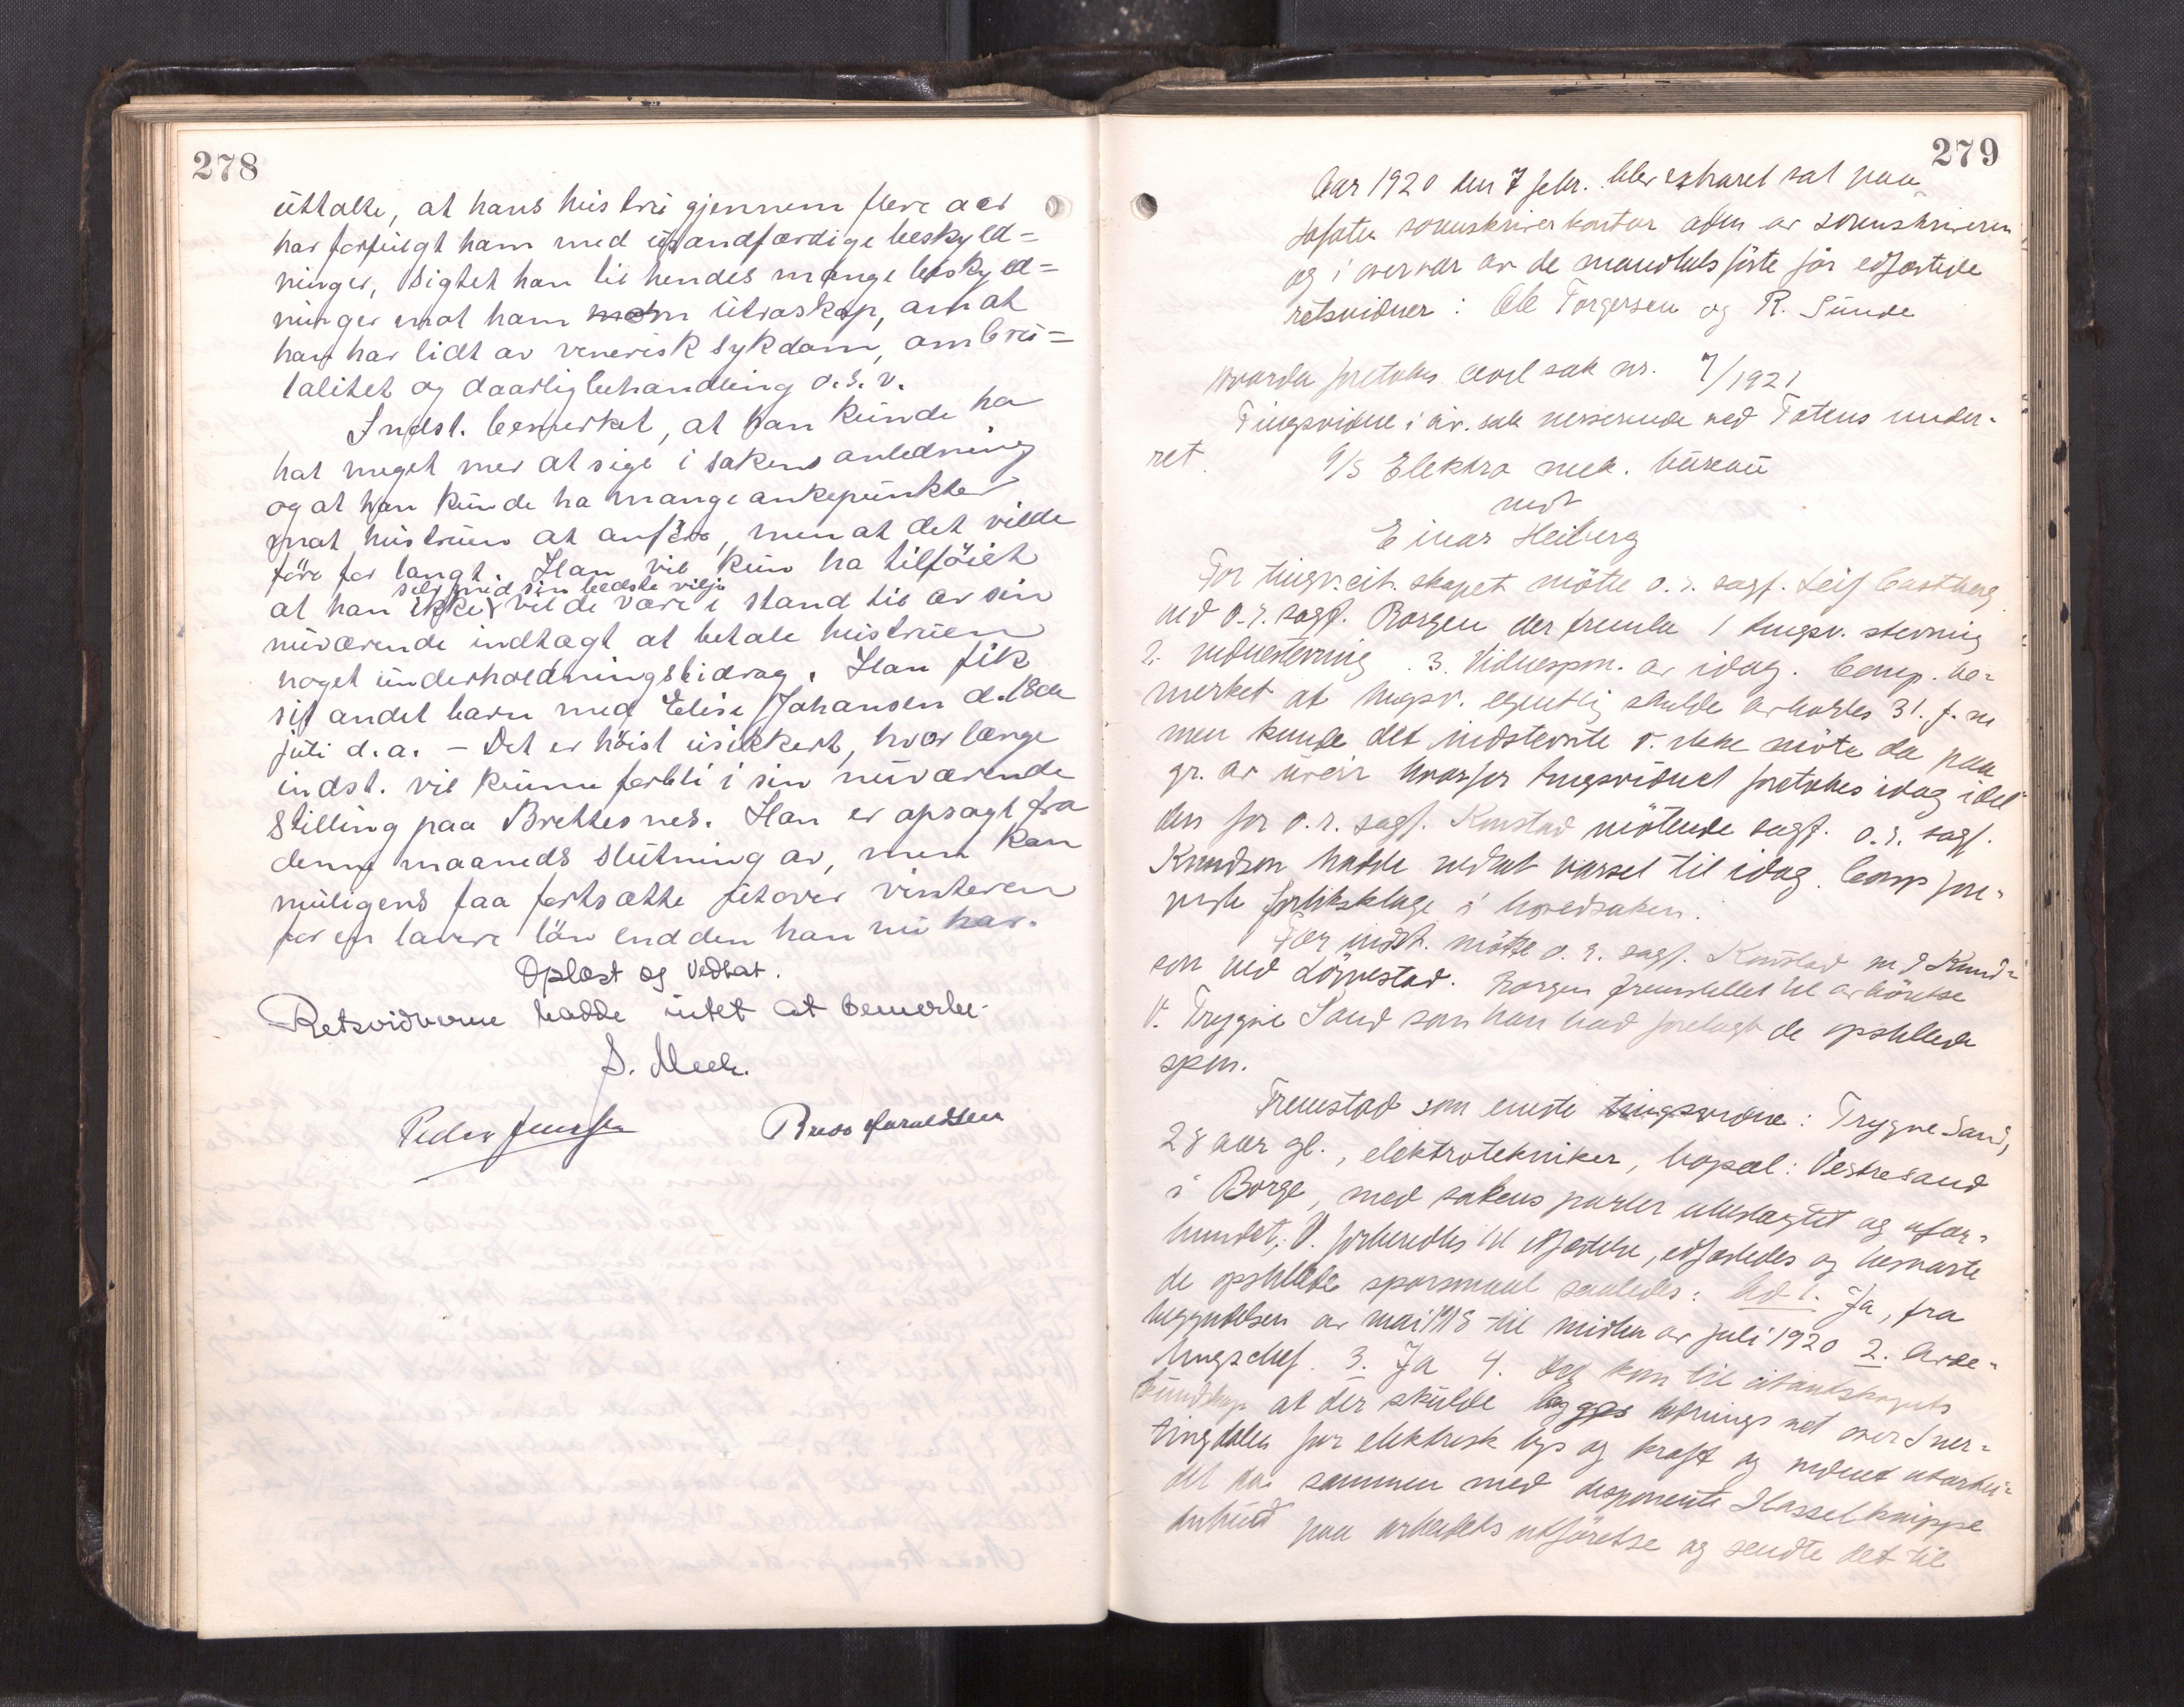 278
uttalte, at hans hustru gjennem flere aar
har forfulgt ham med usandfærdige beskyld=
ninger, Sigtet han til hendes mange beskyld=
ninger mot ham om utroskap, om at
han har lidt av venerisk sykdom, om bru=
talitet og daarlig behandling o.s.v.
Indst. bemerket, at han kunde ha
hat meget mer at sige i sakens anledning
og at han kunde ha mange ankepunkter
mot hustruen at anføre, men at det vilde
føre for langt. Han vil kun ha tilføiet
at han ikke selv med sin bedste vilje vilde være i stand til av sin
nuværende indtægt at betale hustruen
noget underholdningsbidrag. Han fik
sit andet barn med Elise Johansen d. 18de
juli d.a. – Det er høist usikkert, hvor længe
indst. vil kunne forbli i sin nuværende
stilling paa Brettesnes. Han er opsagt fra
denne maaneds slutning av, men kan
muligens faa fortsætte utover vinteren
for en lavere løn end den han nu har.
Oplæst og vedtat.
Retsvidnerne hadde intet at bemerke.
Peder Jensen
Haraldsen
279
Aar 1920 den 7 febr. blev extraret sat paa
Lofoten sorenskriverkontor adm av sorenskriveren
og i overvær av de mandtalsførte før edfæstede
retsvidner: Ole Torgersen og R. Sunde
Hvorda foretokes civil sak nr. 7/1921
Tingsvidne i civ. sak verserende ved Totens under-
ret
A/S Elektro mek. bureau
mot
Einar Heiberg
For tingv. cit. skapet møtte o.r. sagf. Leif Castberg
ved o.r. sagf. Borgen der fremla 1 tingsv. stevning
2. vidnestevning. 3. Vidnespm. av idag. Comp. be-
merket at tingsv. egentlig skulde avholdes 31. f. m
men kunde det indstevnte v. ikke møte da paa
gr. av uveir hvorfor tingsvidnet foretokes idag idet
den for o.r. sagf. Konstad møtende sagf. o.r. sagf.
Knudson hadde vedtat varsel til idag. Comp fore-
viste forliksklage i hovedsaken.
For indst. møtte o.r. sagf. Konstad ved Knud-
son ved Lövnestad. Borgen fremstillet til avhørelse
V. Trygve Sand som han bad forelagt de opstillede
spm.
Fremstod som eneste tingsvidne: Trygve Sand,
28 aar gl., elektrotekniker, bopæl: Vestresand
i Borge, med sakens parter ubeslægtet og ufor-
bundet; V. forberedtes til edfæstelse, edfæstedes og besvarte
de opstillede spørsmaal saaledes: Ad 1. Ja, fra
begyndelsen av mai 1918 til midten av juli 1920 2. Avde-
lingschef. 3. Ja 4. Det kom til citantskapets
kundskap at der skulde bygges ledningsnet over Sner-
tingdalen for elektrisk lys og kraft og vidnet utarbei-
det da sammen med disponent Hasselknippe
anbud paa arbeidets utførelse og sendte det til